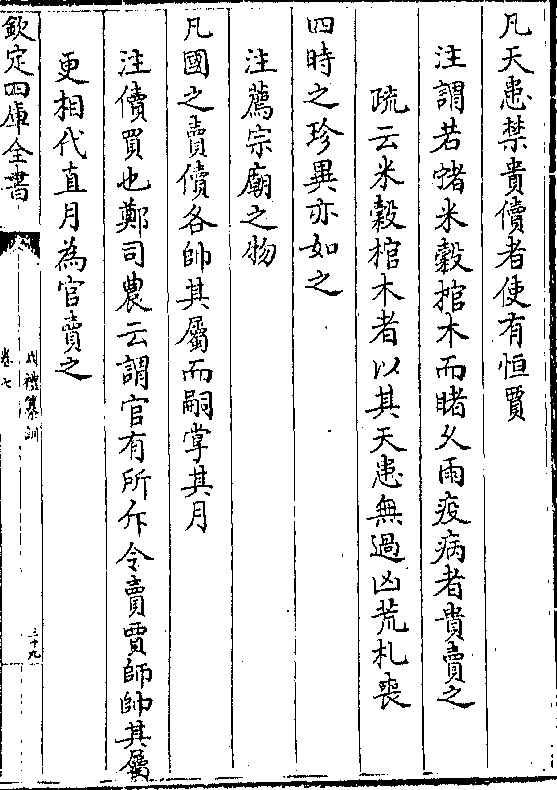 凡天患禁貴儥者使有恒賈
注謂若豬米穀棺木而睹久雨疫病者貴賣之
疏云米穀棺木者以其天患無過凶荒札喪
四時之珍異亦如之
注薦宗廟之物
凡國之賣儥各帥其屬而嗣掌其月
注儥買也鄭司農云謂官有所斥令賣賈師帥其屬
更相代直月為官賣之
欽定四庫全書
周禮纂訓
卷七
三十九